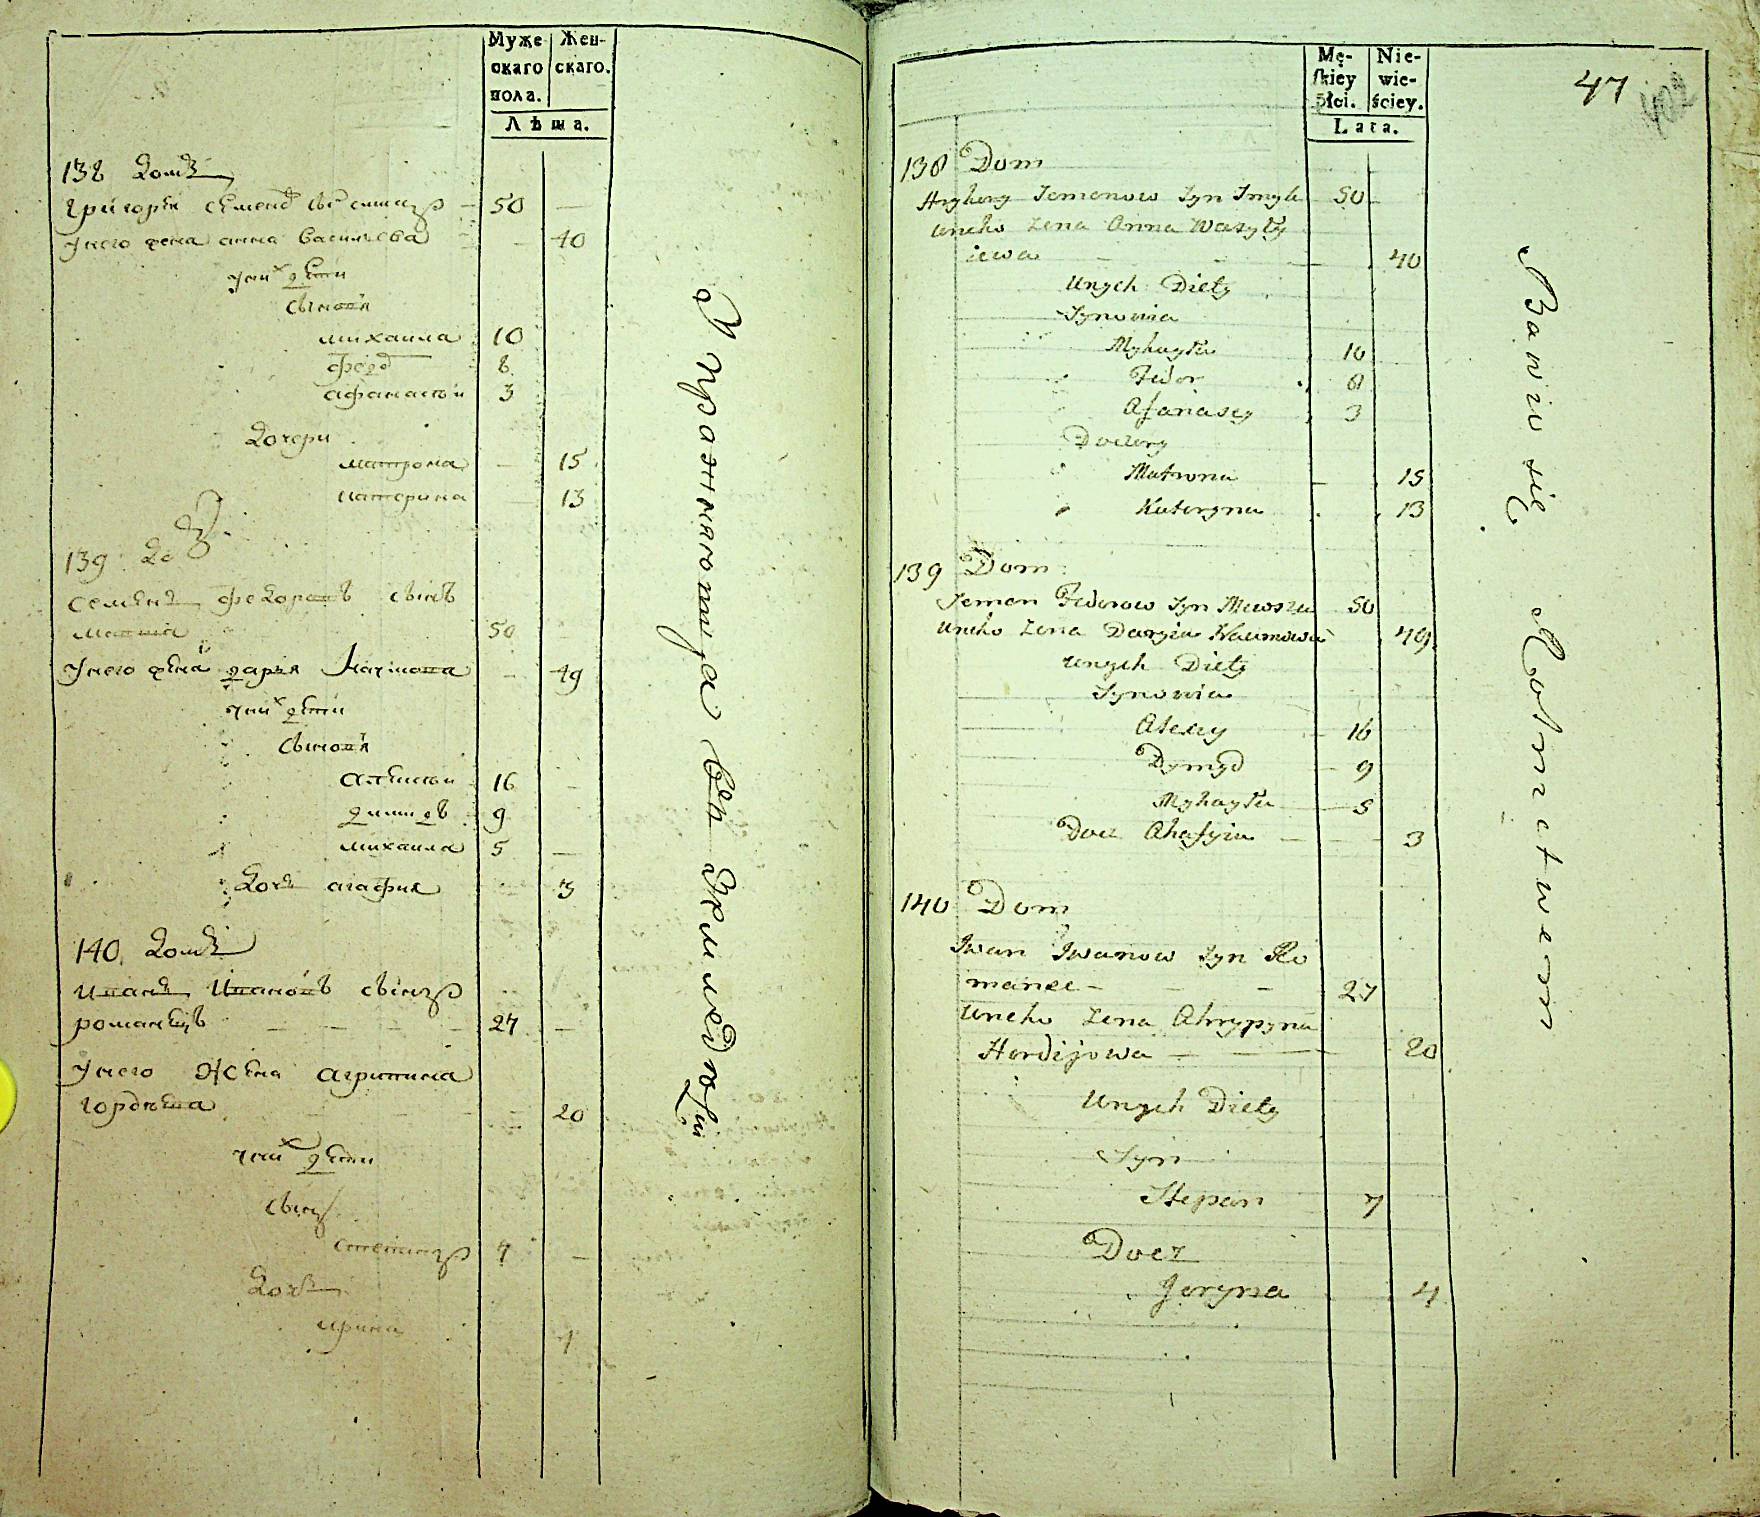 Муже
скаго
пола.
Жен-
скаго.
Лѣта.
138 домъ
григорѣи семеновъ сынъ
50
у него жена анна васильева
40
у них дети
сыновя
михаила 10
федор 8
афанасъи 3
дочери
матрона 15
катерина 13
139 до
семенъ федоровъ сынъ
50
у него жена дарья наумова 49
у них дети
сыновя
алексъи 16
демидъ 9
михаила 5
дочь агафия 3
140 домъ
иванъ ивановъ сынъ
романецъ 27
у него жена агрипина
гордѣева 20
у них дети
сынъ
степанъ 7
дочь
ирина 4
Упражняютца в земледелии
Mę-
skiey
płci.
Nie-
wie-
ściey.
Lata.
47
402
138 Dom
Hryhory Semenow Syn Smyk 50
Uneho Zena Anna Wasyly
iewa 40
Unych Diety
Synowia
Myhayła 10
Fedor 8
Afanasey 3
Doczery
Matrona 15
Kateryna 13
139 Dom
Semen Fedorow Syn 50
Uneho Zena Daryia Naumowa 49
Unych Diety
Synowia
Alexey 16
Dymyd 9
Myhayła 5
Docz Ahafyia 3
140 Dom
Iwan Iwanow Syn Ro
maniec 27
Uneho Zena Ahrypyna
Hordijowa 20
Unych Diety
Syn
Stepan 7
Docz
Joryna 4
Bawiw się Rolnictwem